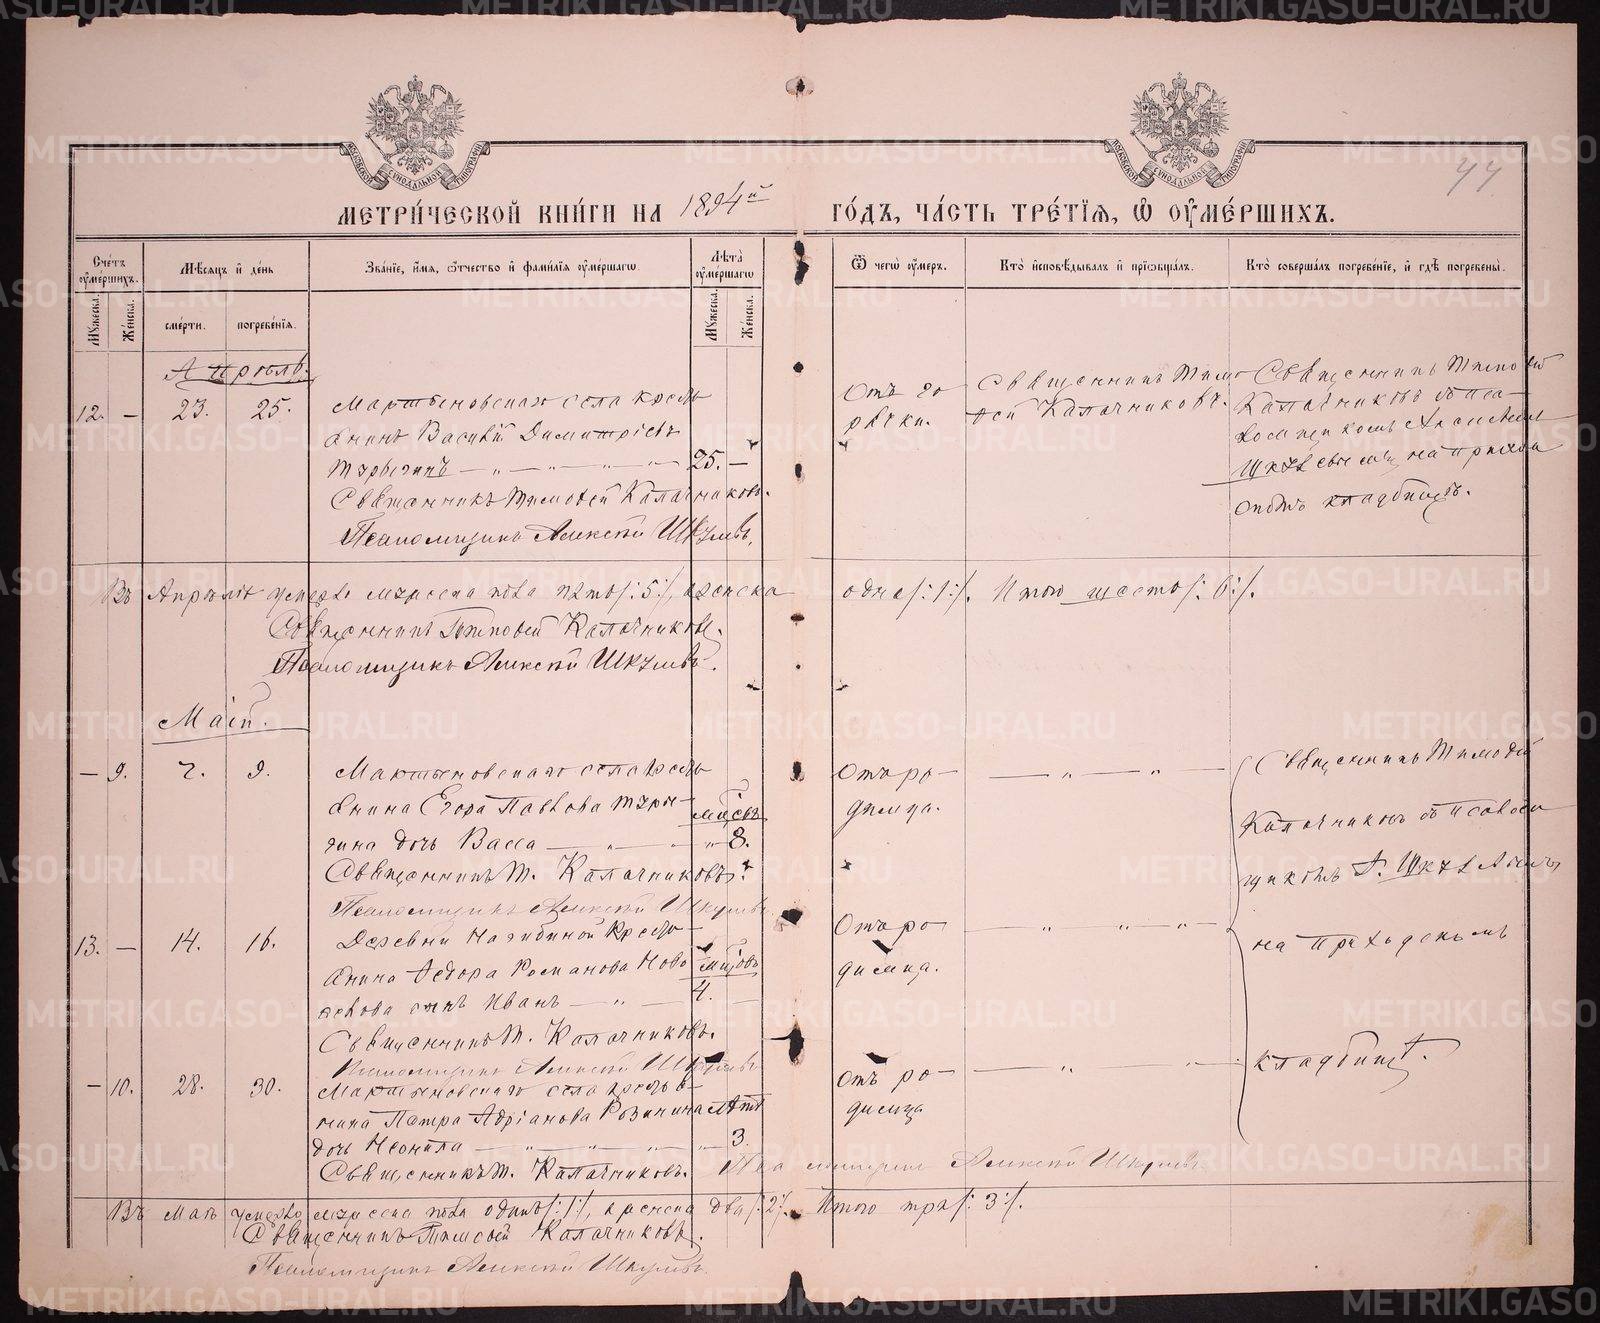 МЕТРИ́ЧЕСКОЙ КНИ́ГИ НА 1894й ГО́ДЪ, ЧА́СТЬ ТРЕ́ТІѦ, Ѡ ОУ҆МЕ́РШИХЪ.
Сче́тъ оу҆ме́ршихъ.
Мѣ́сяцъ и҆ де́нь
Зва́нїе, и҆́мя, ѻ҆́тчество и҆ фами́лїя оу҆ме́ршагѡ
Лѣ́та оу҆ме́ршагѡ
Ѿ чегѡ̀ оу҆́меръ.
Кто̀ и҆сповѣ́дывалъ и҆ прїѡбща́лъ.
Кто̀ соверша́лъ погребе́нїе, и҆ гдѣ̀ погребены̀.
Мꙋ́жеска.
Же́нска.
сме́рти.
погребе́нїѧ.
Мꙋ́жеска.
Же́нска.
Апрѣль.
12. — 23. 25.
Мартыновскаго села кресть
янинъ Василій Димитріевъ
Турыгинъ — „ — „ — „ — 25. —
Священникъ Тимофей Калачниковъ.
Псаломщикъ Алексѣй Шкулевъ.
Отъ го
рячки.
Священникъ Тимо
фей Калачниковъ.
Священникъ Тимофей
Калачниковъ съ пса
ломщикомъ Алексѣемъ
Шкулевымъ, на приход
скомъ кладбищѣ.
Въ Апрѣлѣ умерло мужеска пола пять /:5:/, женска одна /:1:/. Итого шесть /:6:/.
Священникъ Тимофей Калачниковъ.
Псаломщикъ Алексѣй Шкулевъ.
Май.
— 9. 7. 9.
Мартыновскаго села кресть
янина Егора Павлова Туры-
гина дочь Васса — „ — „ — „ 8.
мѣсцъ
Священникъ Т. Калачниковъ.
Псаломщикъ Алексѣй Шкулевъ.
Отъ ро—
димца.
— „ — „ —
Священникъ Тимофей
Калачниковъ съ псалом
щикомъ А. Шкулевымъ,
на приходскомъ
кладбищѣ.
13. — 14. 16.
Деревни Нагибиной кресть—
янина Федора Романова Ново
селова сынъ Иванъ — „ — 4. —
мѣсцовъ
Священникъ Т. Калачниковъ.
Псаломщикъ Алексѣй Шкулевъ
Отъ ро—
димца.
— „ — „ — „ —
— 10. 28. 30.
Мартыновскаго села крестья—
нина Петра Адріанова Розинина лѣтъ
дочь Неонила — „ — „ — „ — „ 3.
Священникъ Т. Калачниковъ. Псаломщикъ Алексѣй Шкулевъ.
Отъ ро—
димца
— „ — „ —
Въ Маѣ умерло мужеска пола одинъ /:1:/, женска два /:2:/. Итого три /:3:/.
Священникъ Тимофей Калачниковъ.
Псаломщикъ Алексѣй Шкулевъ.
METRIKI.GASO-URAL.RU